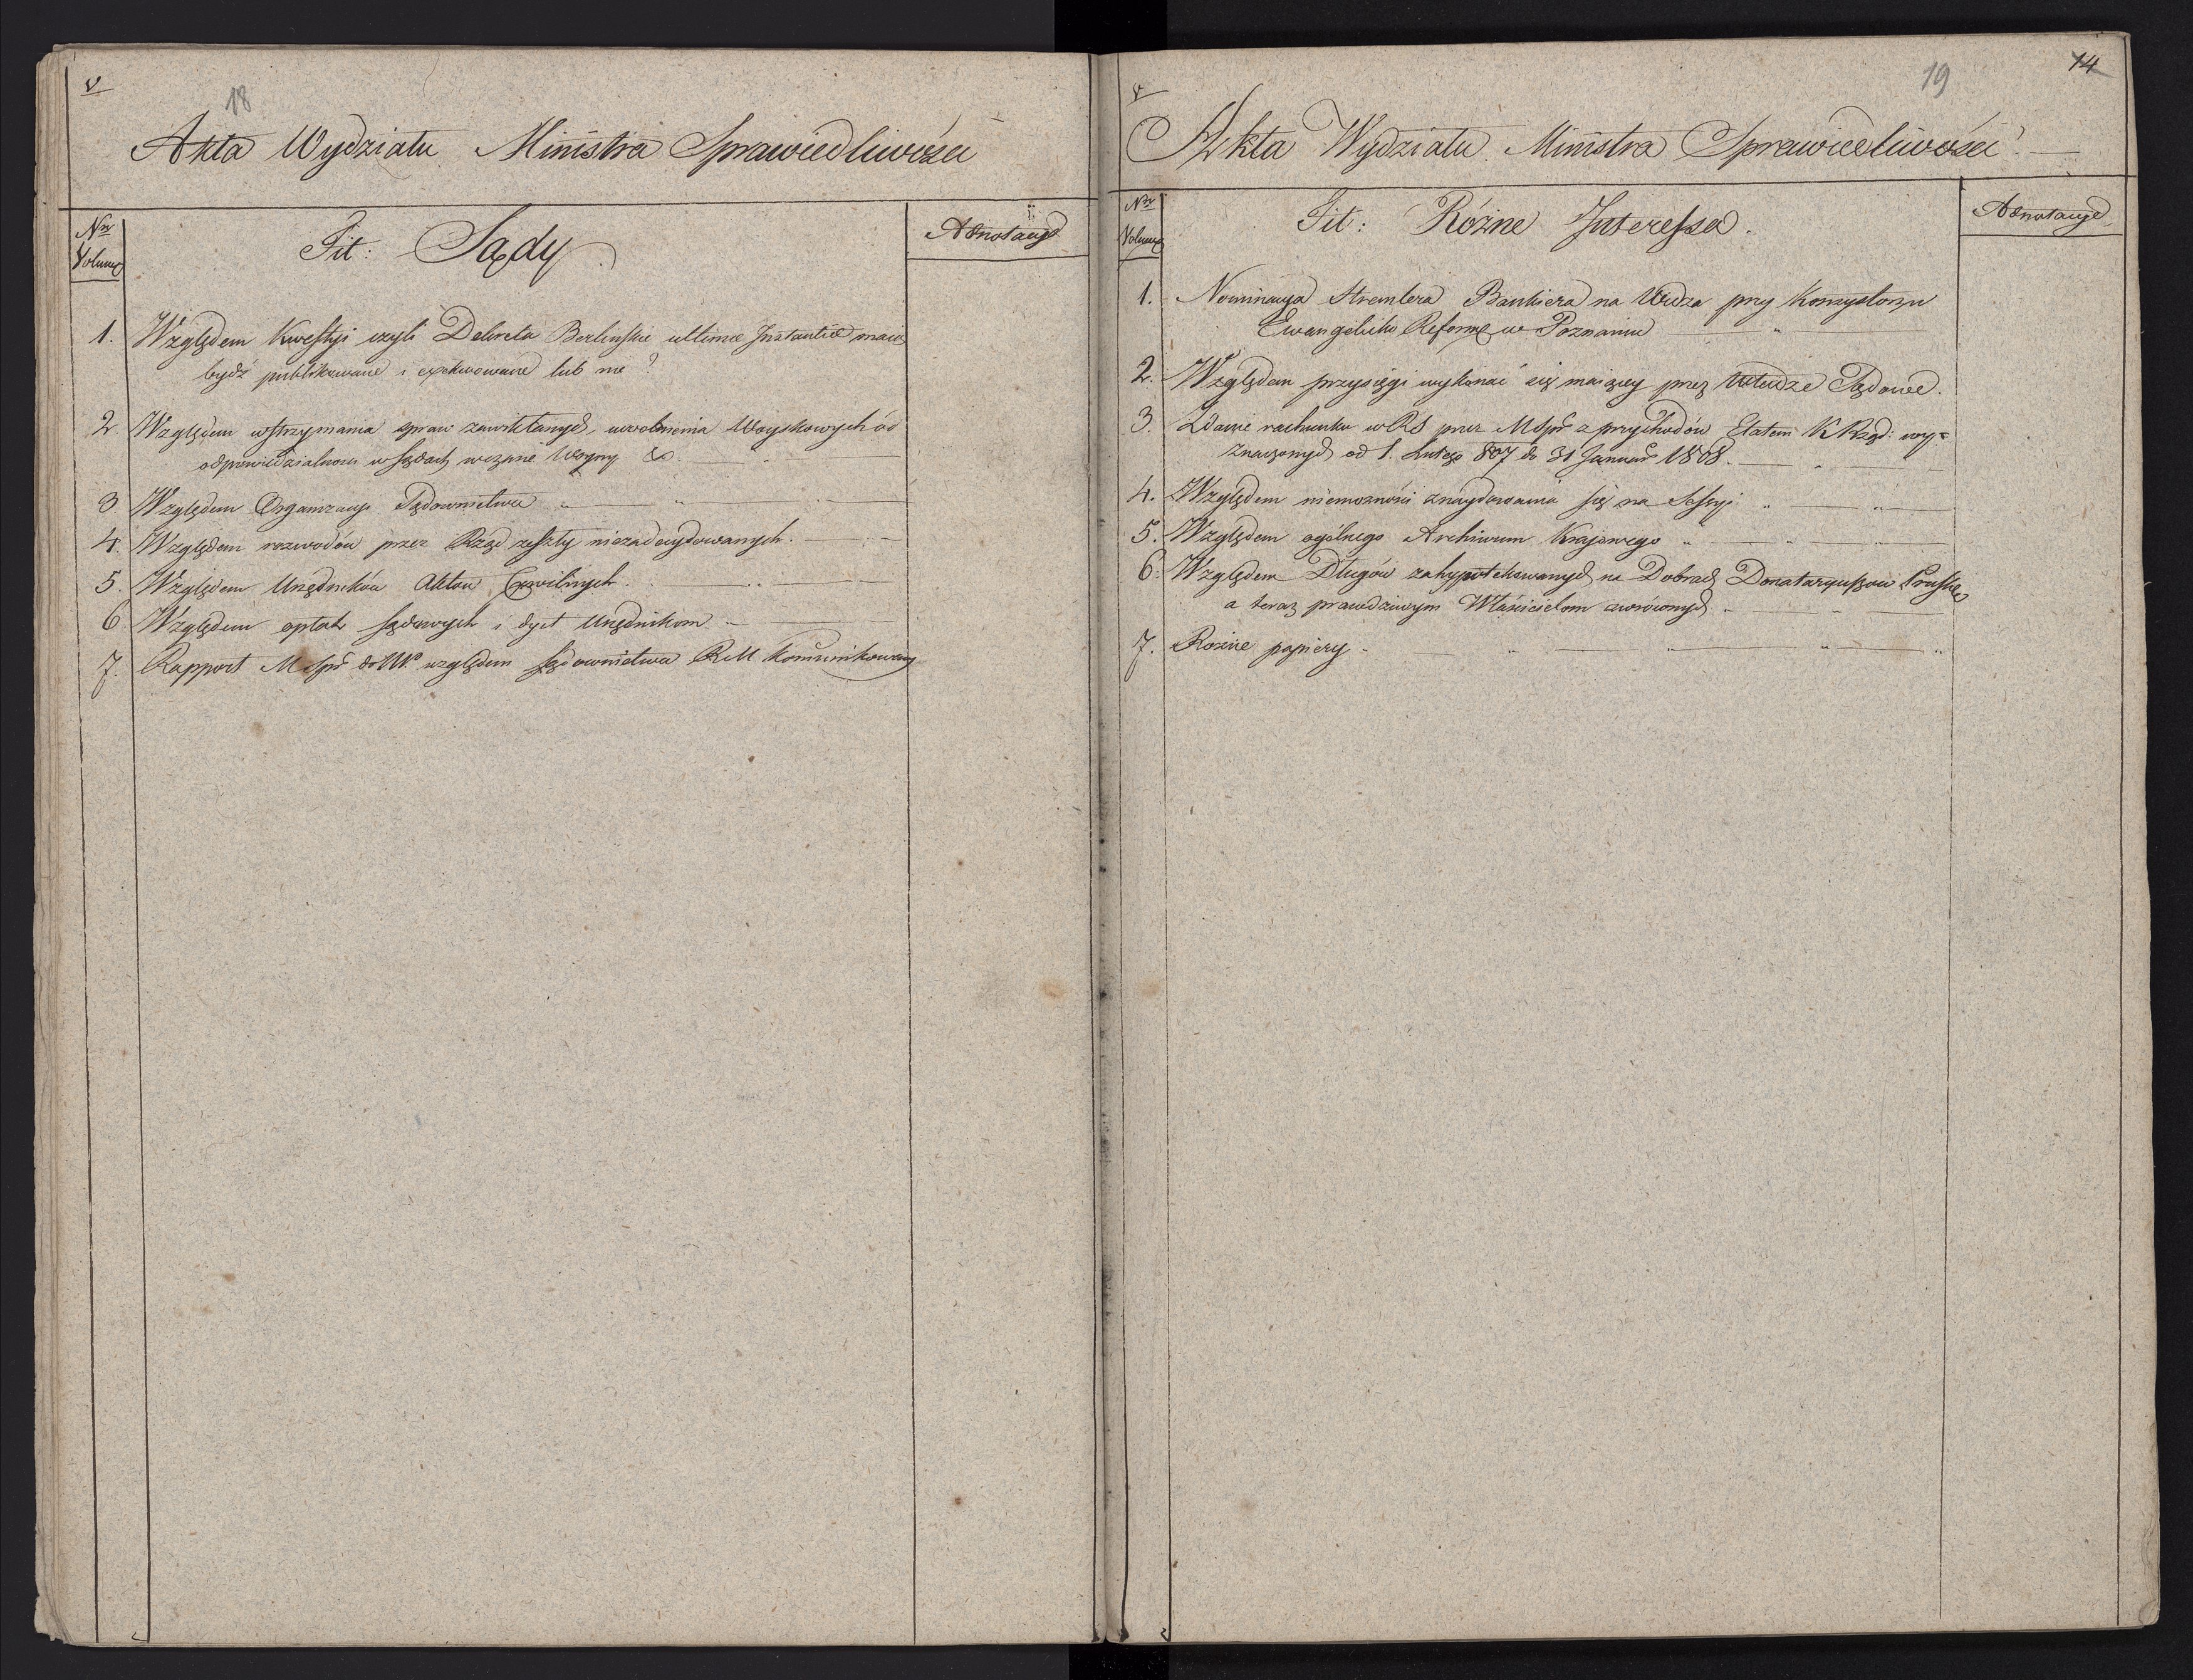 V
18
Akta Wydziału Ministra Sprawiedliwości
Nro Volumen
Tit: Sądy
Adnotacye
1. Względem Kwestyi czyli Dekreta Berlinskie ultimae Instantiae maią
bydź publikowane i exekwowane lub nie?
2. Względem wstrzymania spraw zawikłanych, uwolnienia Woyskowych od
odpowiedzialności w Sądach w czasie Woyny &c.
3. Względem Organizacyi Sądownictwa
4. Względem rozwodów przez Rząd zeszły niezadecydowanych.
5. Względem Urzędników Aktów Cywilnych.
6. Względem opłat sądowych i dyet Urzędnikom
7. Rapport M Spr do NP. względem sądownictwa RM komunikowany
V
19
14
Akta Wydziału Ministra Sprawiedliwości.
Nro Volumen
Tit: Różne Interessa.
Adnotacye
1. Nominacya Stremlera Bankiera na przy Konzystorzu
Ewangelicko Reformę w Poznaniu
2. Względem przysięgi wykonać się maiącey przez Władze Sądowe.
3. Zdanie rachunku w RS przez M Spr z przychodów Etatem K Rząd: wy=
znaczonych od 1. Lutego 807 do 31 Januar 1808.
4. Względem niemożności znaydowania się na Sessyi
5. Względem ogólnego Archiwum Krajowego
6. Względem Długów zahypotekowanych na Dobrach Donataryuszow Pruskich
a teraz prawdziwym Właścicielom zwróconych
7. Rozne papiery